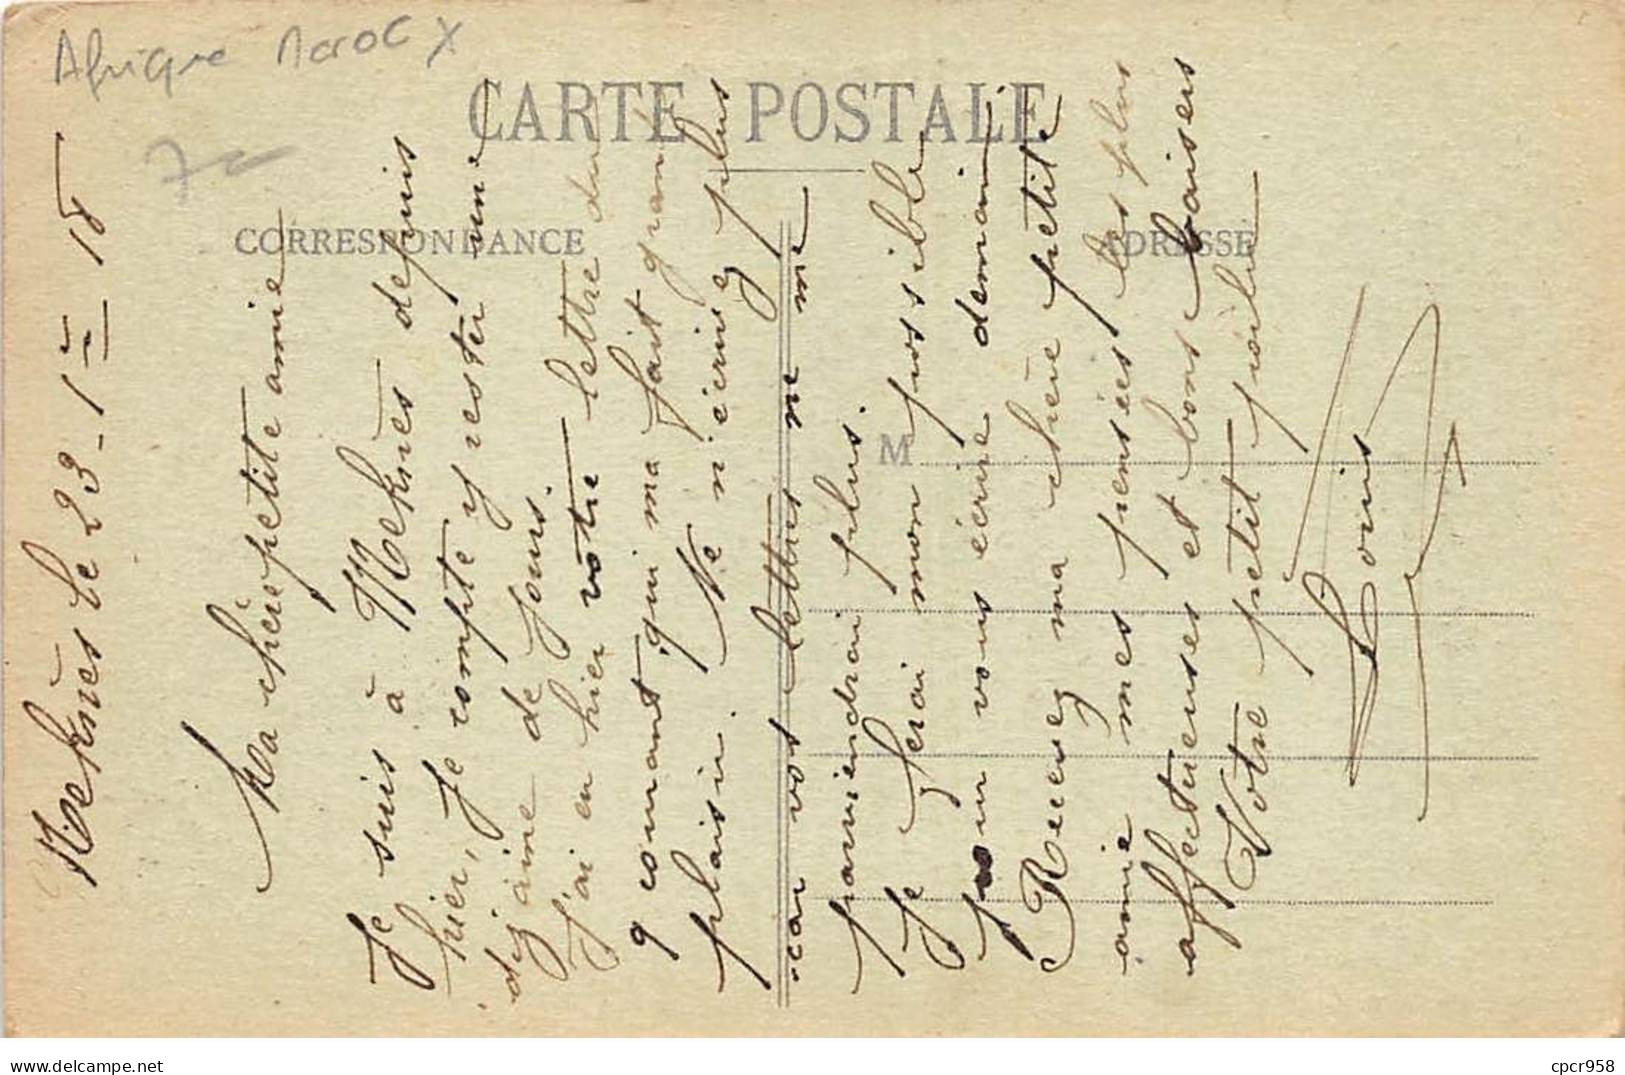 Afrique Maroc X
7
CARTE POSTALE
CORRESPONDANCE
ADRESSE
M
Meknès le 23-1er 18
Ma chère petite amie
Je suis à Meknès depuis
hier, Je compte y rester une
dizaine de jours.
J'ai eu hier votre lettre du
9 courant qui ma fait grand
plaisir. Ne m'écrivez plus
car vos lettres ne me
parviendrai plus.
Je ferai mon possible
pour vous écrire demain
Recevez ma chère petite
amie mes pensées les plus
affectueuses et bons baisers
Votre petit poilu
Louis
www.delcampe.net
cpcr958